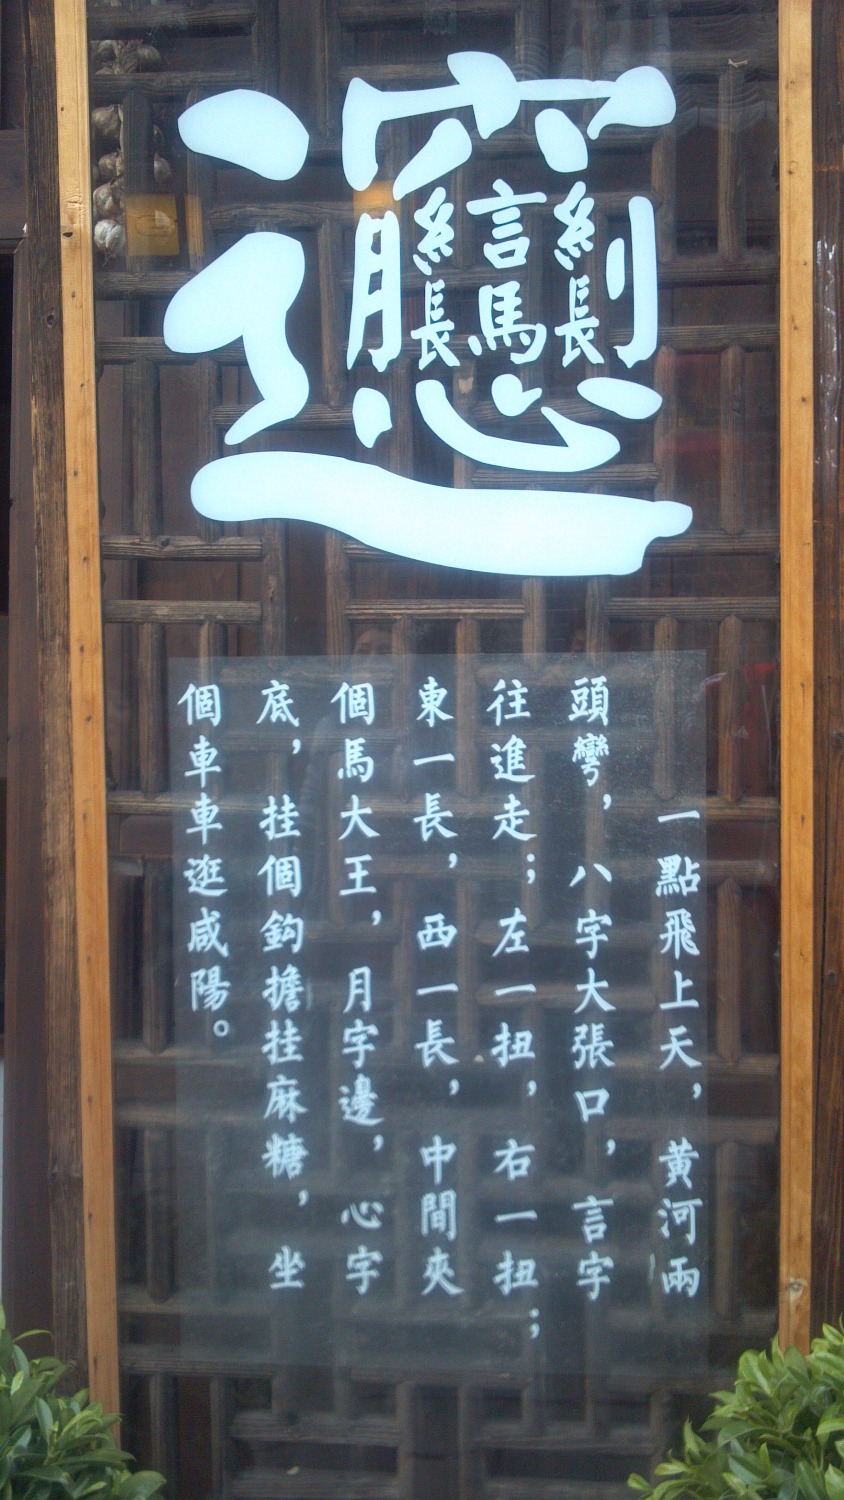 𰻞
一點飛上天，黄河兩
頭彎，八字大張口，言字
往進走；左一扭，右一扭；
東一長，西一長，中間夾
個馬大王，月字邊，心字
底，挂個鈎擔挂麻糖，坐
個車車逛咸陽。